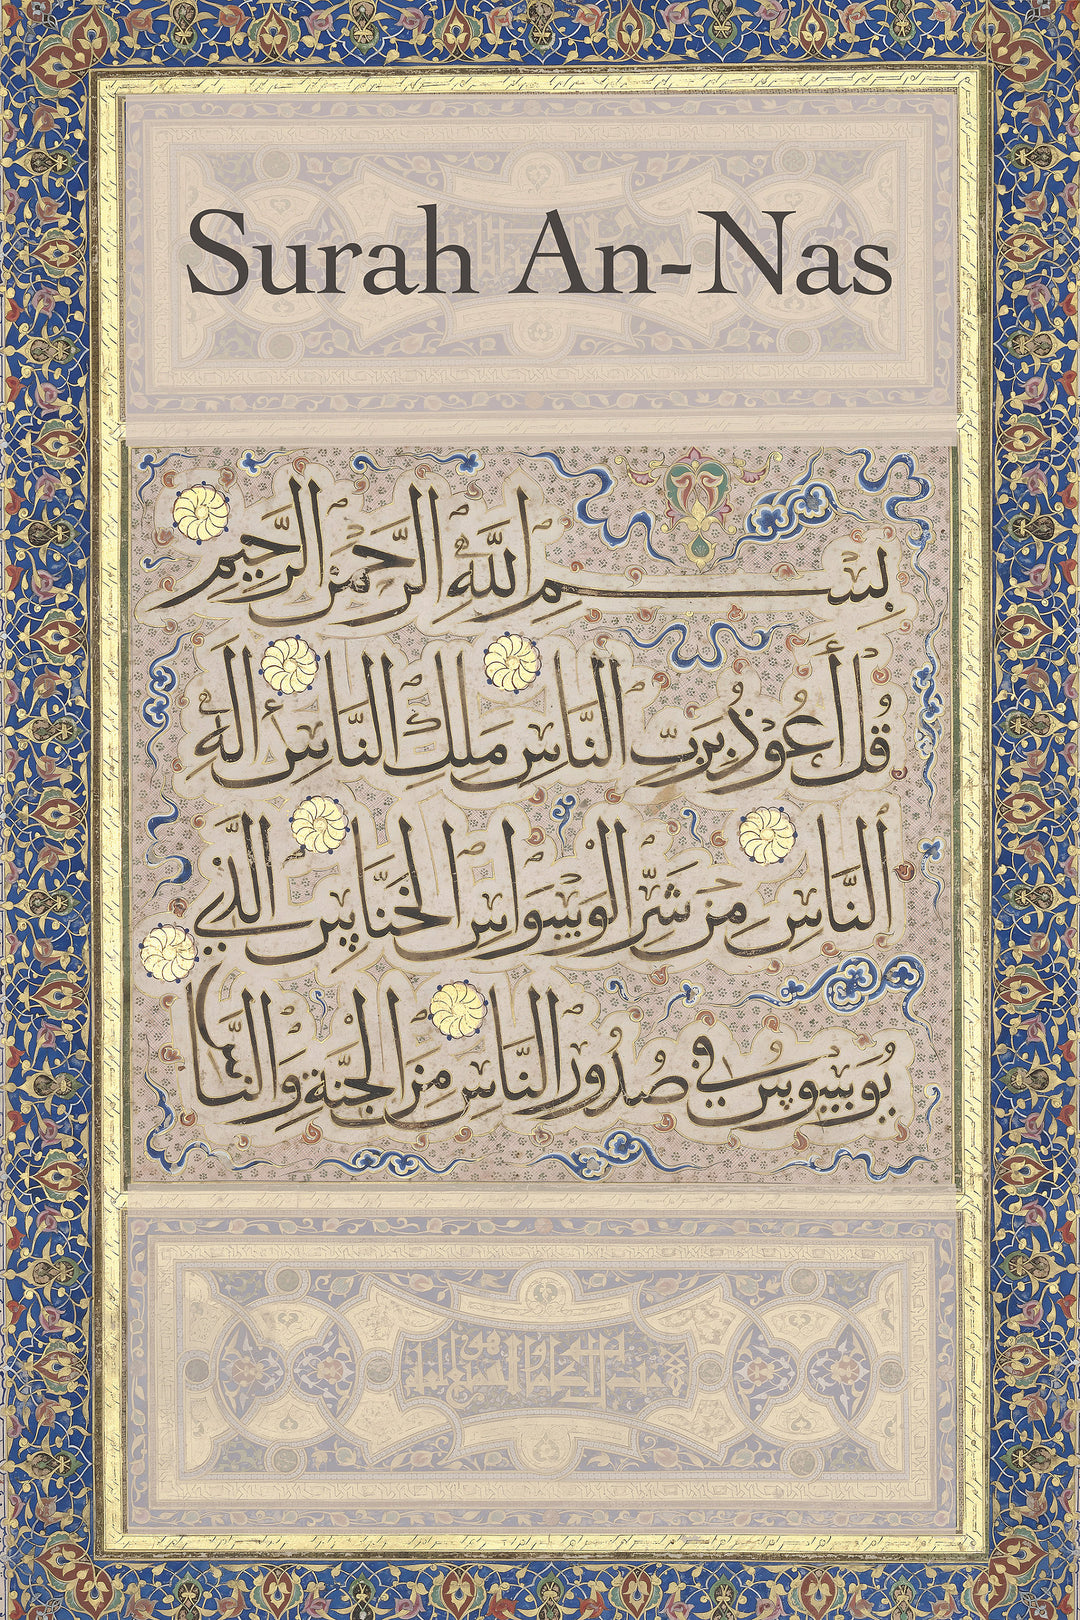 Surah An-Nas
بِسْمِ اللَّهِ الرَّحْمَنِ الرَّحِيمِ
قُلْ أَعُوذُ بِرَبِّ النَّاسِ مَلِكِ النَّاسِ إِلَهِ
النَّاسِ مِنْ شَرِّ الْوَسْوَاسِ الْخَنَّاسِ الَّذِي
يُوَسْوِسُ فِي صُدُورِ النَّاسِ مِنَ الْجِنَّةِ وَالنَّاسِ